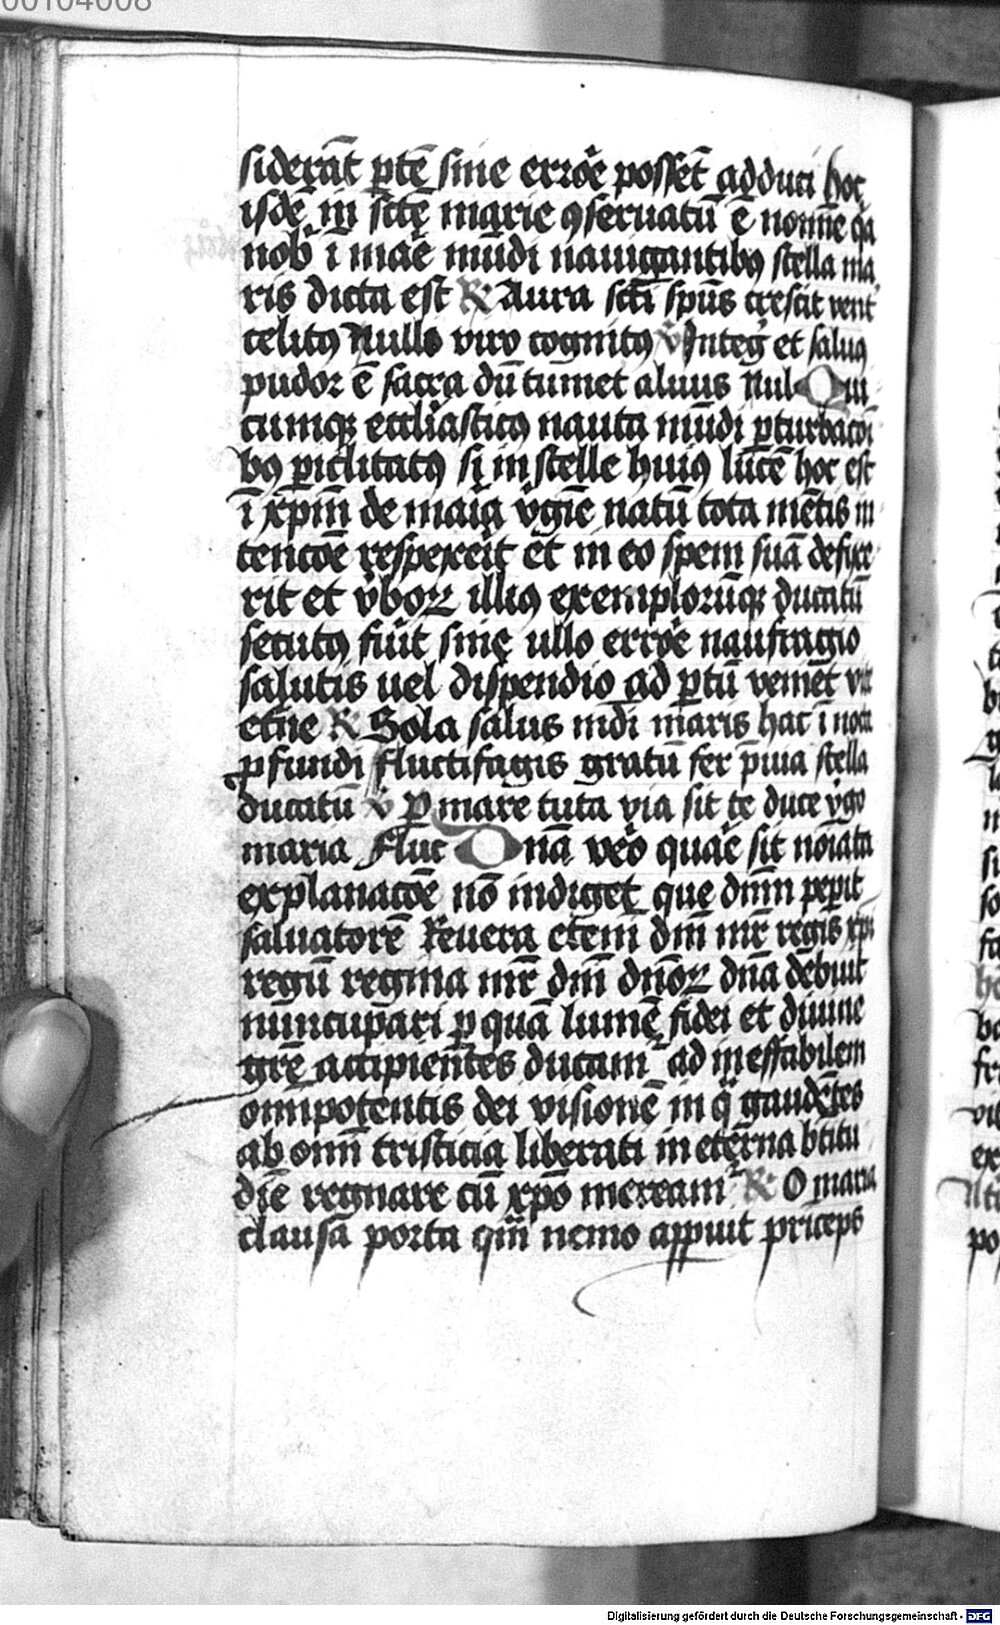 00104008
siderāt ꝑtē sine erroͤe possēt adduci hoc
isdē in scē marie ꝯseruatū ē nomīe qͥa
nob̄ ī maͤe mūdi nauigantibꝰ stella ma
ris dicta est ℟ Aura sc̄i sp̄us crescit vent͛
celitꝰ Nullo viro cognitꝰ ℣ Integ͛ et saluꝰ
pudor ē sacra dū tumet aluus Nul Qui
cumqꝫ eccl̄iasticꝰ nauta mūdi ꝑturbacōi
bꝰ ꝑiclitatꝰ si in stelle huiꝰ lucē hoc est
ī xp̄m de maͥa vͥgīe natū tota mētis in
tencōe respexeͥit et in eo spem suā defixe
rit et vͤboꝝ illiꝰ exemplorūqꝫ ducatū
secutꝰ fiūt sine ullo erroͤe naufragio
salutis uel dispendio ad ꝑtū veniēt vite
et͛ne ℟ Sola salus mūdi maris hac ī nocte
ꝓfundi Fluctifagis gratū fer p̄uia stella
ducatū ℣ ꝑ mare tuta via sit te duce vͥgo
maria Fluc Dn̄a veͦo quaͤe sit noīata
explanacōe nō indiget que dn̄m peꝑit
saluatorē Reuera etenī dn̄i mr̄ regis xp̄i
regū regina mr̄ dn̄i dn̄oꝝ dn̄a debuit
nuncupari ꝑ quā lumē fidei et diuine
gr̄e accipientes ducamͬ ad ineffabilem
omnipotentis dei visionē in qͣ gaudētes
ab omī tristicia liberati in et͛na btitu
dīe regnare cū xp̄o mereamͬ ℟ O maria
clausa porta qm̄ nemo apꝑuit prīceps
Digitalisierung gefördert durch die Deutsche Forschungsgemeinschaft - DFG